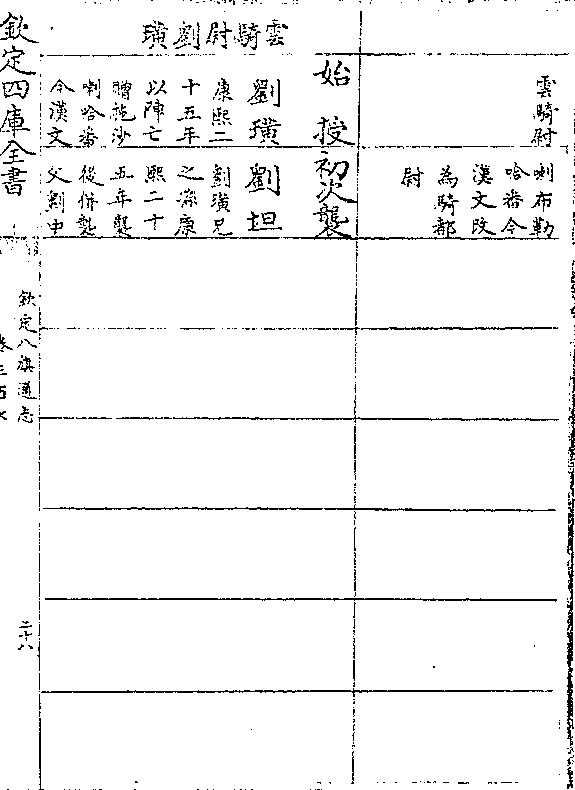 雲騎尉
喇布勒
哈番今
漢文改
為騎都
尉
雲騎尉劉璜
始授
初次襲
劉璜
康熙二
十五年
以陣亡
贈拖沙
喇哈番
今漢文
劉坦
劉璜兄
之孫康
熙二十
五年襲
後併襲
父劉中
欽定四庫全書
欽定八旗通志
二十八